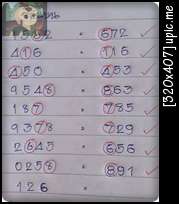 = 672
416 = 116
450 = 453
9548 = 863
187 = 785
9378 = 729
2645 = 656
0258 = 891
126 =
[320x407]upic.me